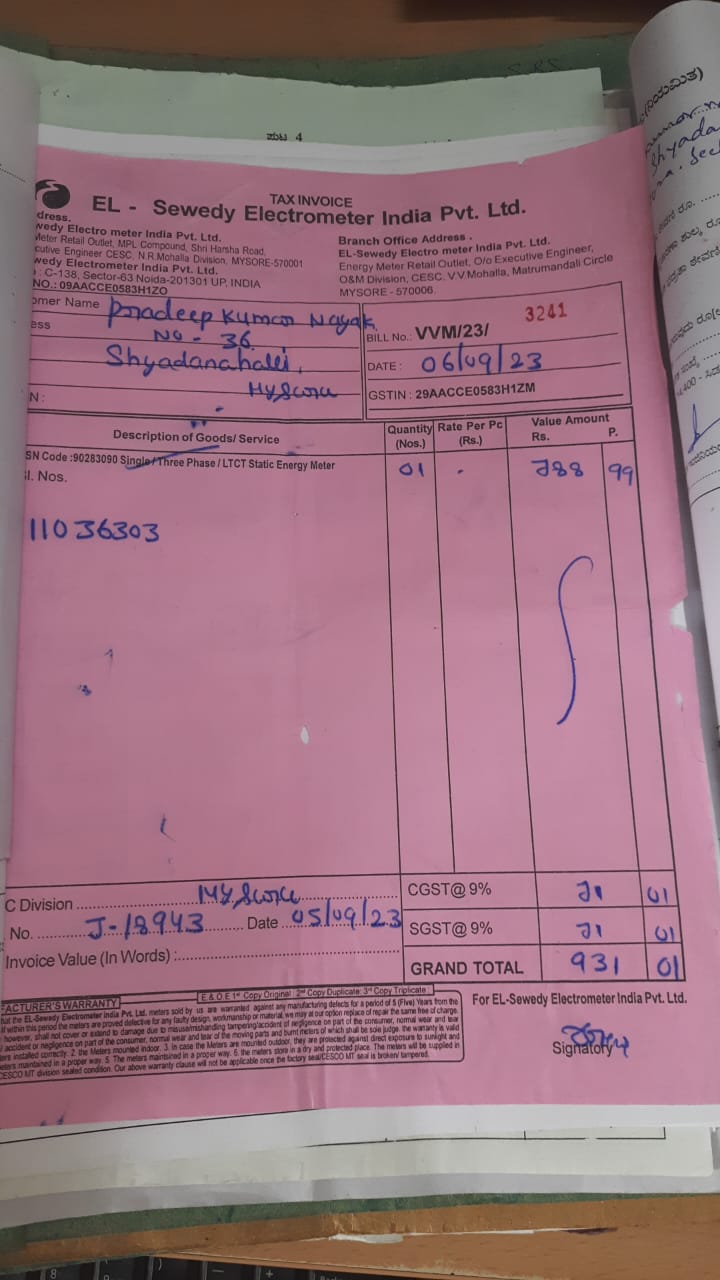 ಪುಟ 4
TAX INVOICE
EL - Sewedy Electrometer India Pvt. Ltd.
dress.
wedy Electro meter India Pvt. Ltd.
Meter Retail Outlet, MPL Compound, Shri Harsha Road,
cutive Engineer CESC, N.R.Mohalla Division, MYSORE-570001
wedy Electrometer India Pvt. Ltd.
: C-138, Sector-63 Noida-201301 UP, INDIA
NO.: 09AACCE0583H1ZO
Branch Office Address .
EL-Sewedy Electro meter India Pvt. Ltd.
Energy Meter Retail Outlet, O/o Executive Engineer,
O&M Division, CESC. V.V.Mohalla, Matrumandali Circle
MYSORE - 570006.
omer Name Pradeep Kumar Nayak
ess No - 36
Shyadanahalli,
Mysore
N :
BILL No.: VVM/23/ 3241
DATE : 06/09/23
GSTIN : 29AACCE0583H1ZM
Description of Goods/ Service Quantity (Nos.) Rate Per Pc (Rs.) Value Amount Rs. P.
SN Code :90283090 Single / Three Phase / LTCT Static Energy Meter 01 - 788 99
l. Nos.
11036303
C Division Mysore
CGST@ 9% 71 01
No. J-18943 Date 05/09/23
SGST@ 9% 71 01
Invoice Value (In Words) :
GRAND TOTAL 931 01
E.& O.E 1st Copy Original : 2nd Copy Duplicate: 3rd Copy Triplicate :
ACTURER'S WARRANTY
hat the EL-Sewedy Electrometer India Pvt. Ltd. meters sold by us are warranted against any manufacturing defects for a period of 5 (Five) Years from the
If within this period the meters are proved defective for any faulty design, workmanship or material, we may at our option replace of repair the same free of charge.
however, shall not cover or extend to damage due to misuse/mishandling tampering/accident of negligence on part of the consumer, normal wear and tear
accident or negligence on part of the consumer, normal wear and tear of the moving parts and burnt meters of which shall be sole judge. the warranty is valid
ers installed correctly. 2. the Meters mounted indoor. 3. in case the Meters are mounted outdoor, they are protected against direct exposure to sunlight and
eters maintained in a proper way. 5. The meters maintained in a proper way. 6. the meters store in a dry and protected place. The meters will be supplied in
CESCO MT division sealed condition. Our above warranty clause will not be applicable once the factory seal/CESCO MT seal is broken/ tampered.
For EL-Sewedy Electrometer India Pvt. Ltd.
Signatory